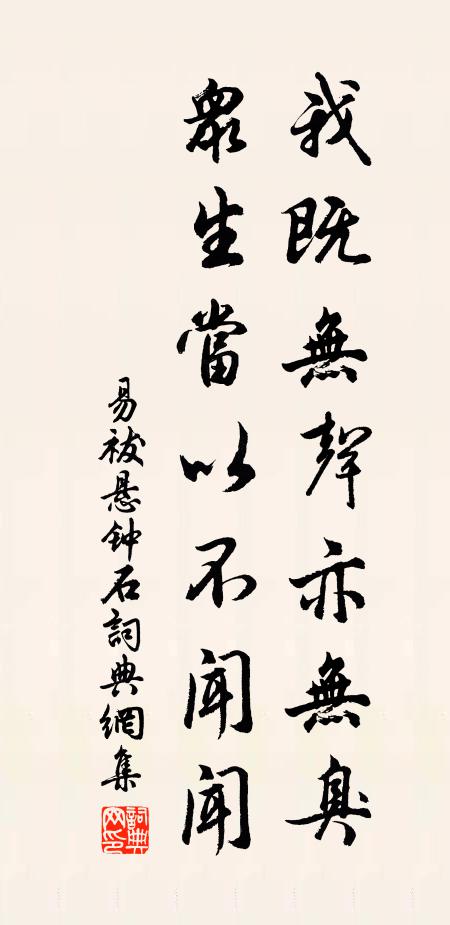 我既無聲亦無臭
眾生當以不聞聞
易祓悬钟石詞典網集
詞典網印